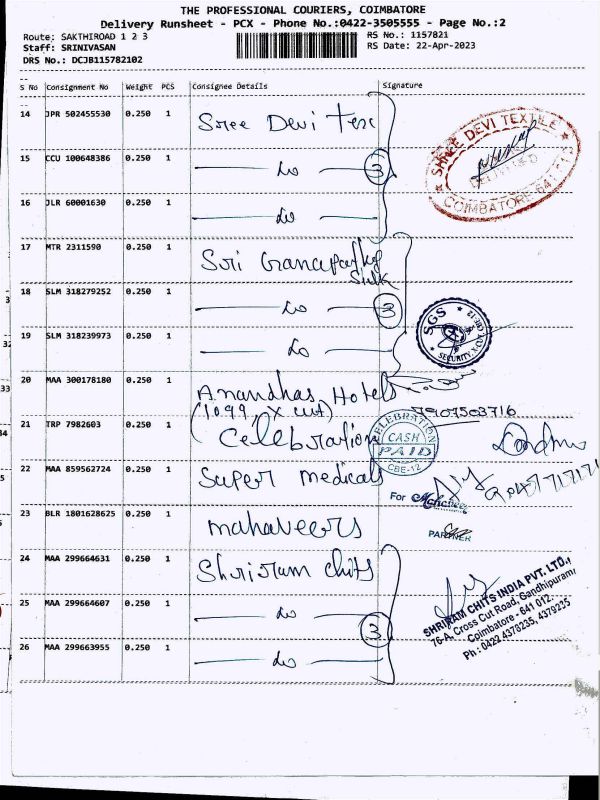 THE PROFESSIONAL COURIERS, COIMBATORE
Delivery Runsheet - PCX - Phone No.:0422-3505555 - Page No.:2
Route: SAKTHIROAD 1 2 3
RS No.: 1157821
Staff: SRINIVASAN
RS Date: 22-Apr-2023
DRS No.: DCJB115782102
S No Consignment No Weight PCS Consignee Details Signature
14 JPR 502455530 0.250 1 Sree Devi Tex
15 CCU 100648386 0.250 1 do 3
SHREE DEVI TEXTILE
DELIVERED
COIMBATORE-641 012
16 JLR 60001630 0.250 1 do
17 MTR 2311590 0.250 1 Sri Ganapathy Silk
18 SLM 318279252 0.250 1 do 3
SGS
SECURITY
19 SLM 318239973 0.250 1 do
20 MAA 300178180 0.250 1 Anandhas Hotels
(1099, X cut)
7907503716
21 TRP 7982603 0.250 1 Celebration
CELEBRATION
CASH
PAID
CBE-12
22 MAA 859562724 0.250 1 Super medicals
For Mahaveers
23 BLR 1801628625 0.250 1 mahaveers
PARTNER
24 MAA 299664631 0.250 1 Shriram chits
25 MAA 299664607 0.250 1 do
3
SHRIRAM CHITS INDIA PVT. LTD.,
76-A, Cross Cut Road, Gandhipuram,
Coimbatore - 641 012.
Ph : 0422 4378235, 4379235
26 MAA 299663955 0.250 1 do